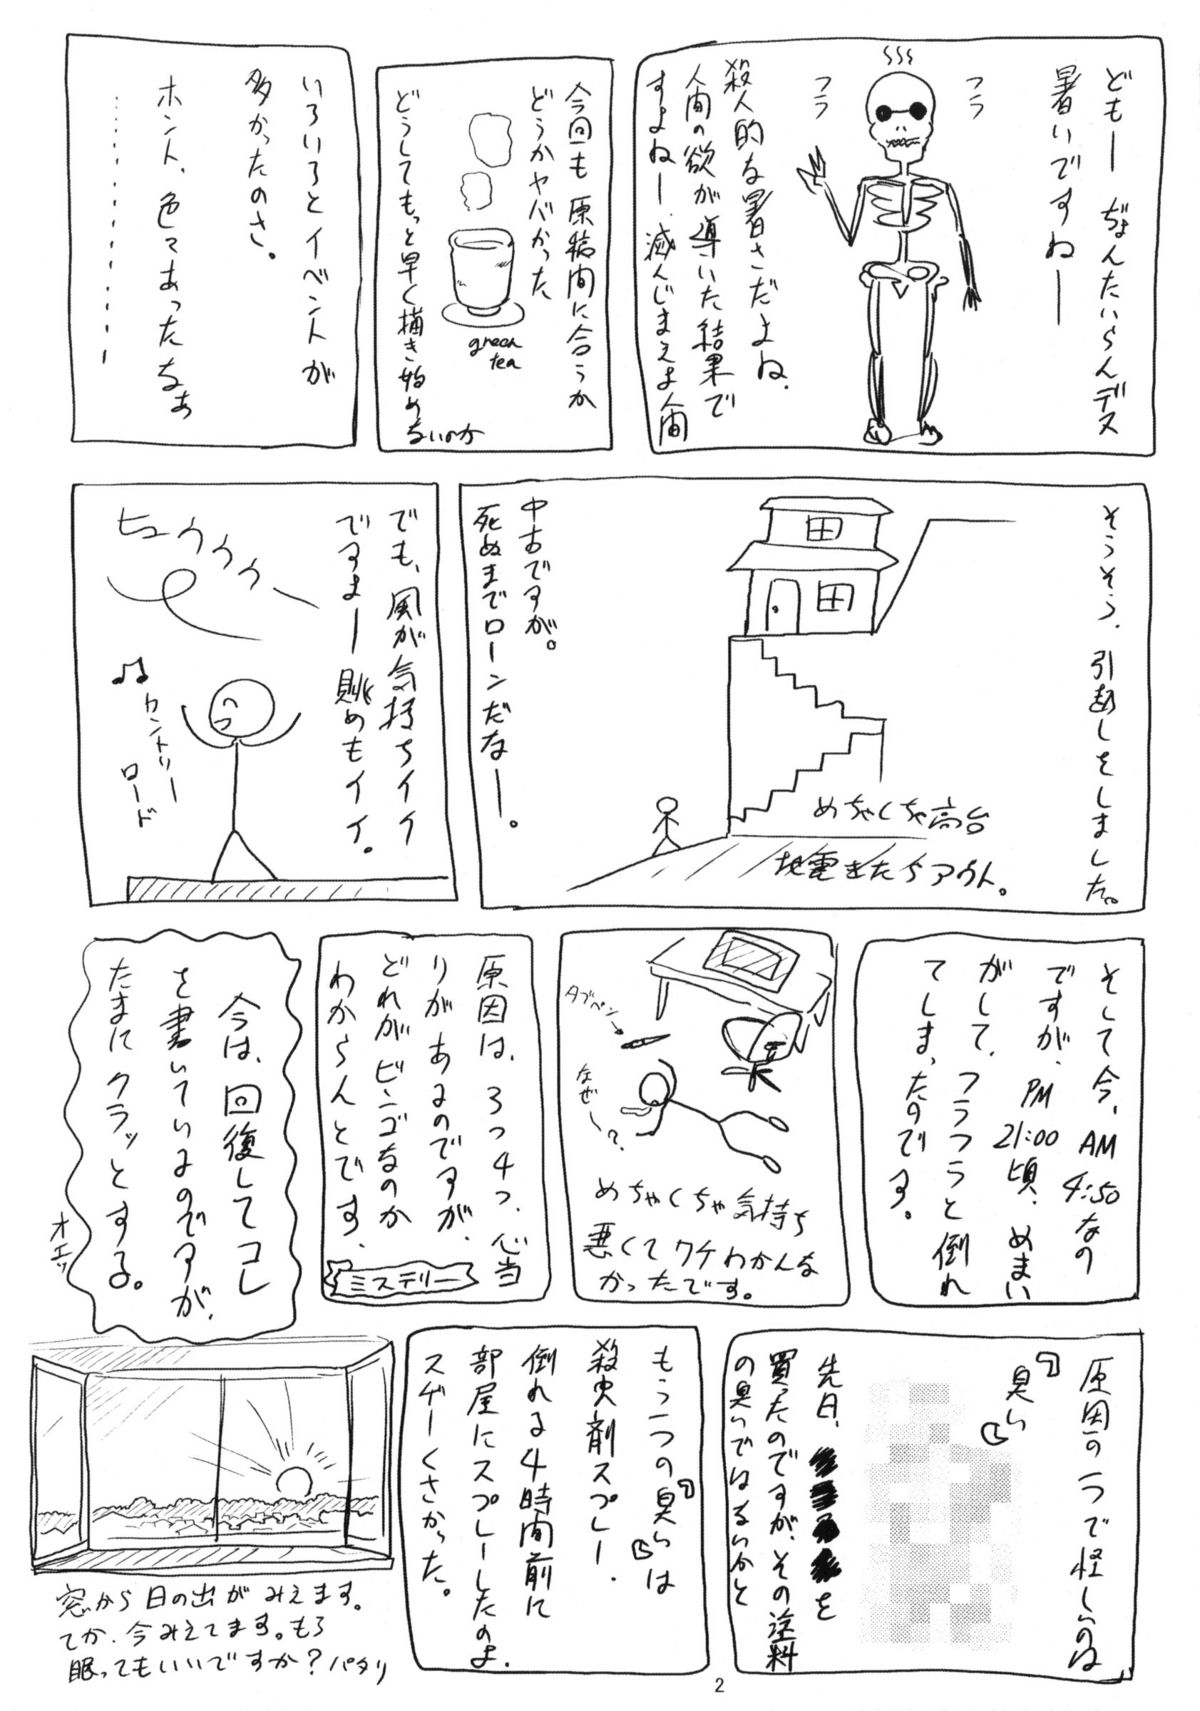 どもー ぢょんたいらんデス
暑いですねー
フラ
フラ
殺人的な暑さだよね、
人間の欲が導いた結果で
すよねー、滅んじまえよ人間
今回も原稿間に合うか
どうかヤバかった
どうしてもっと早く描き始め
ないのか
green
tea
いろいろとイベントが
多かったのさ。
ホント、色々あったなぁ
そうそう、引越しをしました。
めちゃくちゃ高台
地震きたらアウト。
中古ですが。
死ぬまでローンだなー。
でも、風が気持ちイイ
ですよー眺めもイイ。
ヒュウゥゥー
♫カントリー
ロード
そして今、AM
4:50なの
ですが、PM
21:00
頃、めまい
がして、フラフラと倒れ
てしまったのです。
タブペン
なぜ〜?
めちゃくちゃ気持ち
悪くてワケわかんな
かったです。
原因は、3つ4つ、心当
りがあるのですが、
どれがビンゴなのか
わからんとです、
ミステリー
今は、回復してコレ
を書いているのですが、
たまにクラッとする。
オエッ
原因の一つで怪しいのは
「臭い」
先日、
を
買ったのですが、その塗料
の臭いではないかと
もう一つの「臭い」は
殺虫剤スプレー。
倒れる4時間前に
部屋にスプレーしたのよ。
スゲーくさかった。
窓から日の出がみえます。
てか、今みえてます。もう
眠ってもいいですか?パタリ
2